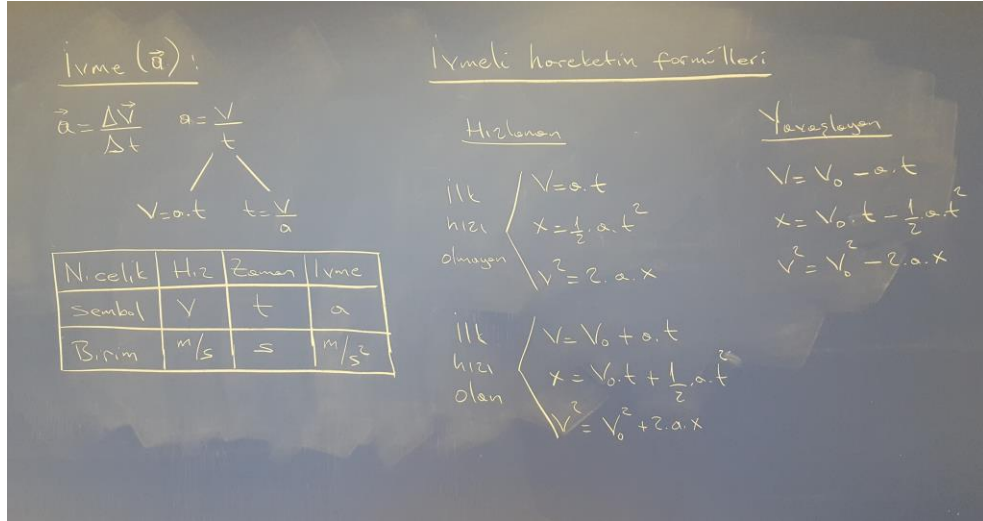 İvme (a⃗) :
a⃗ = ΔV⃗/Δt   a = V/t
V=a.t   t=V/a
Nicelik | Hız | Zaman | İvme
Sembol | V | t | a
Birim | m/s | s | m/s²
İvmeli hareketin formülleri
Hızlanan
İlk
hızı
olmayan
V=a.t
x=1/2.a.t²
V²=2.a.x
İlk
hızı
olan
V=V₀+a.t
x=V₀.t+1/2.a.t²
V²=V₀²+2.a.x
Yavaşlayan
V=V₀-a.t
x=V₀.t-1/2.a.t²
V²=V₀²-2.a.x